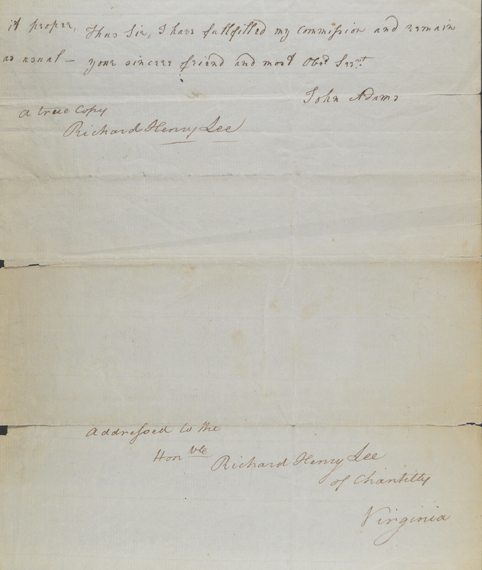 it proper, Thus Sir, I have fullfilled my commission and remain
as usual — your sincere friend and most Obed Servt
John Adams
a true Copy
Richard Henry Lee
Addressed to the
Honble
Richard Henry Lee
of Chantilly
Virginia